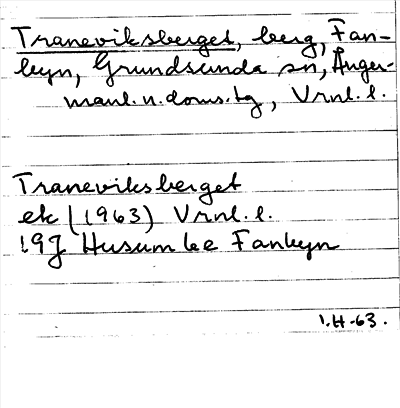 Traneviksberget, berg, Fan-
byn, Grundsunda sn, Ånger-
manl. n. doms. tg, Vrnl. l.
Traneviksberget
ek (1963) Vrnl. l.
19J Husum be Fanbyn
I.H-63.